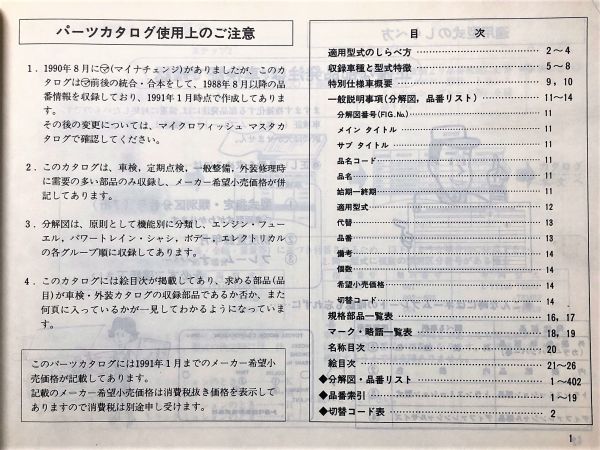 パーツカタログ使用上のご注意
1. 1990年8月に㋮(マイナチェンジ)がありましたが、このカ
タログは㋮前後の統合・合本をして、1988年8月以降の品
番情報を収録しており、1991年1月時点で作成してありま
す。
その後の変更については、マイクロフィッシュ マスタカ
タログで確認してください。
2. このカタログは、車検、定期点検、一般整備、外装修理時
に需要の多い部品のみ収録し、メーカー希望小売価格が併
記してあります。
3. 分解図は、原則として機能別に分類し、エンジン・フュー
エル，パワートレイン・シャシ，ボデー，エレクトリカル
の各グループ順に収録してあります。
4. このカタログには絵目次が掲載してあり、求める部品(品
目)が車検・外装カタログの収録部品であるか否か、また
何頁に入っているかが一見してわかるようになっていま
す。
このパーツカタログには1991年1月までのメーカー希望小
売価格が記載してあります。
記載のメーカー希望小売価格は消費税抜き価格を表示して
ありますので消費税は別途申し受けます。
目 次
適用型式のしらべ方 2〜4
収録車種と型式特徴 5〜8
特別仕様車概要 9，10
一般説明事項(分解図，品番リスト) 11〜14
分解図番号(FIG.No.) 11
メイン タイトル 11
サブ タイトル 11
品名コード 11
品名 11
始期ー終期 11
適用型式 12
代替 13
品番 13
備考 14
個数 14
希望小売価格 14
切替コード 14
規格部品一覧表 16，17
マーク・略語一覧表 18，19
名称目次 20
絵目次 21〜26
◆分解図・品番リスト 1〜402
◆品番索引 1〜19
◆切替コード表 2
1